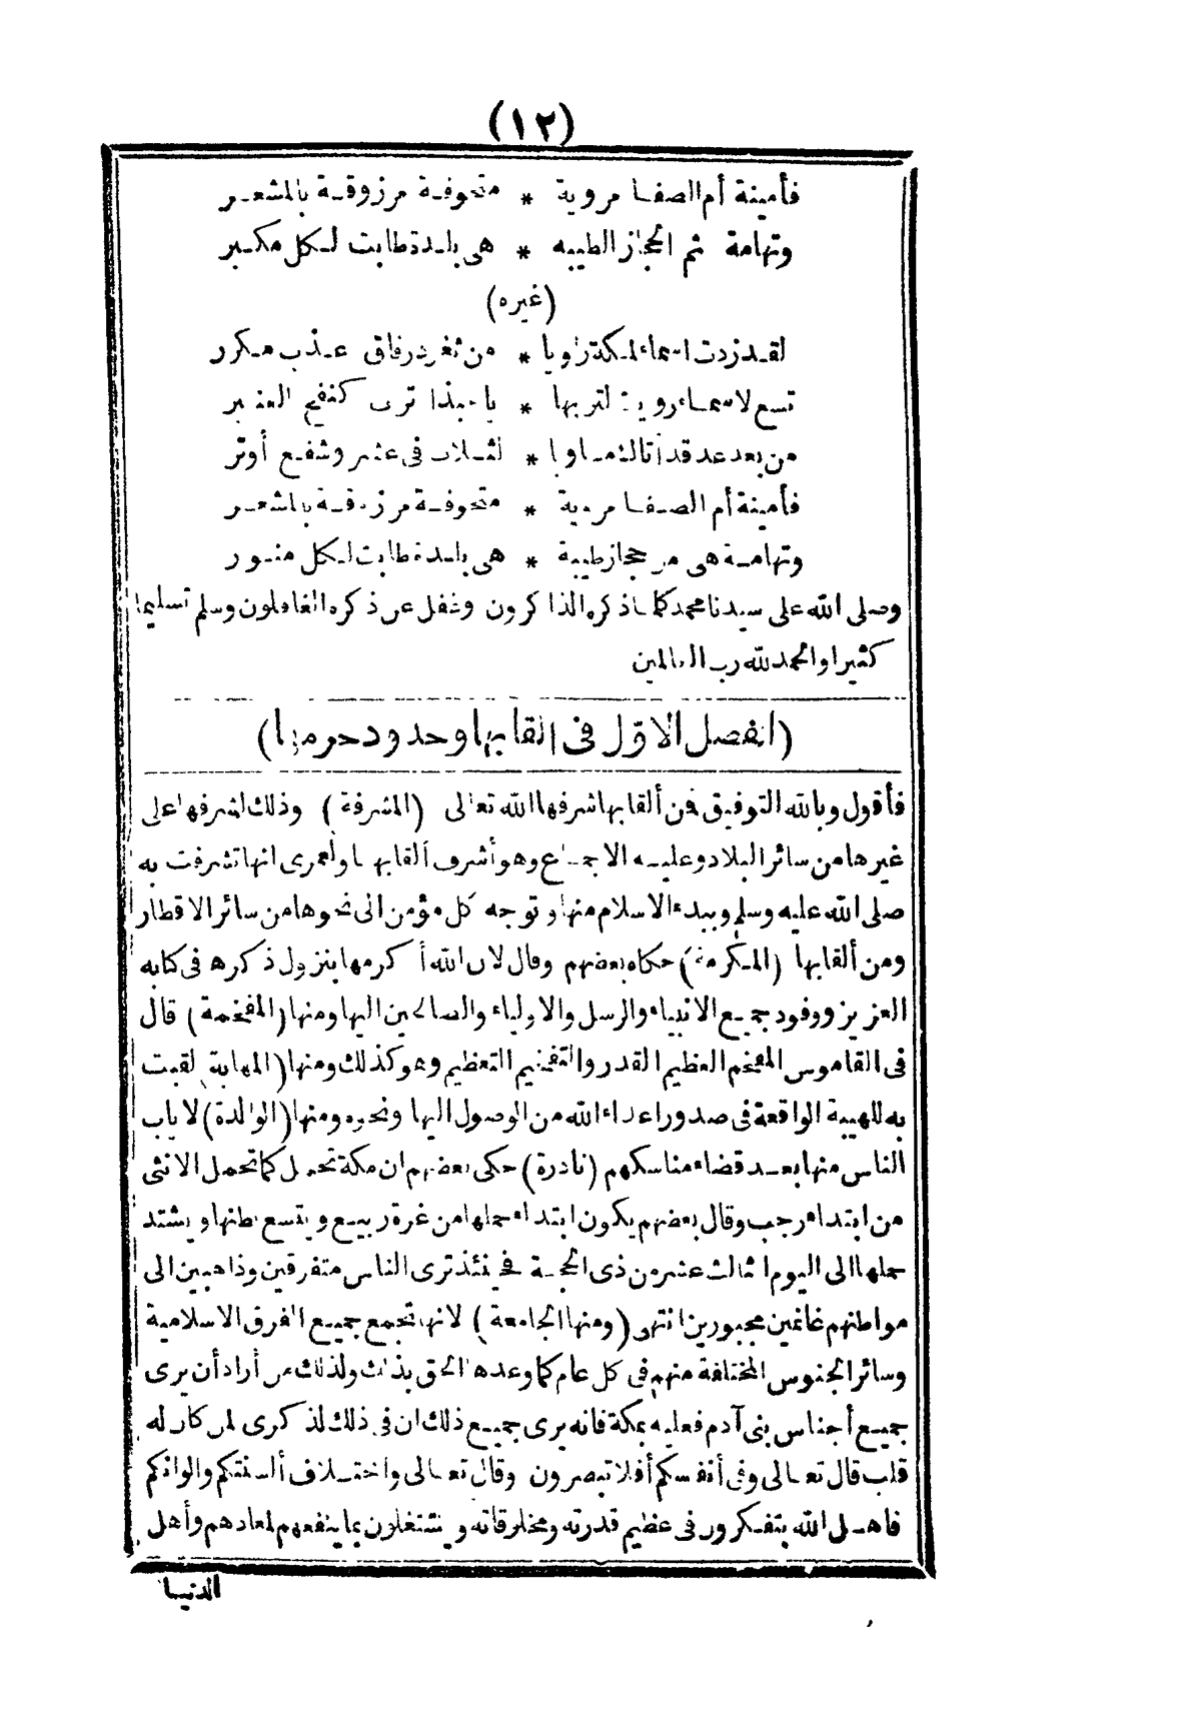 (١٢)
فأمينة أم الصفا مروية * متحوفة مرزوقة بالمشعر
وتهامة ثم الحجاز الطيبه * هى بلدة طابت لكل مكبر
(غيره)
لقد زدت اسماء لمكة راويا * من ثغر در فاق عذب مكرر
تسع لاسماء روين لتربها * يا حبذا ترب كنفح العنبر
من بعد عد قد أتاك * لثلاث فى عشر وشفع أوتر
فأمينة أم الصفا مروية * متحوفة مرزوقة بالمشعر
وتهامة هى من حجاز طيبة * هى بلدة طابت لكل منور
وصلى الله على سيدنا محمد كلما ذكره الذاكرون وغفل عن ذكره الغافلون وسلم تسليما
كثيرا والحمد لله رب العالمين
(الفصل الاول فى القابها وحدود حرمها)
فأقول وبالله التوفيق فمن ألقابها شرفها الله تعالى (المشرفة) وذلك لشرفها على
غيرها من سائر البلاد وعليه الاجماع وهو أشرف ألقابها ولعمرى انها تشرفت به
صلى الله عليه وسلم وببدء الاسلام منها وتوجه كل مؤمن الى نحوها من سائر الاقطار
ومن ألقابها (المكرمة) حكاه بعضهم وقال لان الله أكرمها بنزول ذكره فى كتابه
العزيز ووفود جميع الانبياء والرسل والاولياء والصالحين اليها ومنها (المفخمة) قال
فى القاموس المفخم العظيم القدر والتفخيم التعظيم وهو كذلك ومنها (المهابة) لقبت
به للهيبة الواقعة فى صدور اعداء الله من الوصول اليها ونحوه ومنها (الوالدة) لاياب
الناس منها بعد قضاء مناسكهم (نادرة) حكى بعضهم ان مكة تحمل كما تحمل الانثى
من ابتداء رجب وقال بعضهم يكون ابتداء حملها من غرة ربيع ويتسع بطنها ويشتد
حملها الى اليوم الثالث عشر من ذى الحجة فحينئذ ترى الناس متفرقين وذاهبين الى
مواطنهم غانمين مجبورين انتهى (ومنها الجامعة) لانها تجمع جميع الفرق الاسلامية
وسائر الجنوس المختلفة منهم فى كل عام كما وعدها الحق بذلك ولذلك من أراد أن يرى
جميع أجناس بنى آدم فعليه بمكة فانه يرى جميع ذلك ان فى ذلك لذكرى لمن كان له
قلب قال تعالى وفى أنفسكم أفلا تبصرون وقال تعالى واختلاف ألسنتكم والوانكم
فاهل الله يتفكرون فى عظيم قدرته ومخلوقاته ويشتغلون بما ينفعهم لمعادهم وأهل
الدنيا